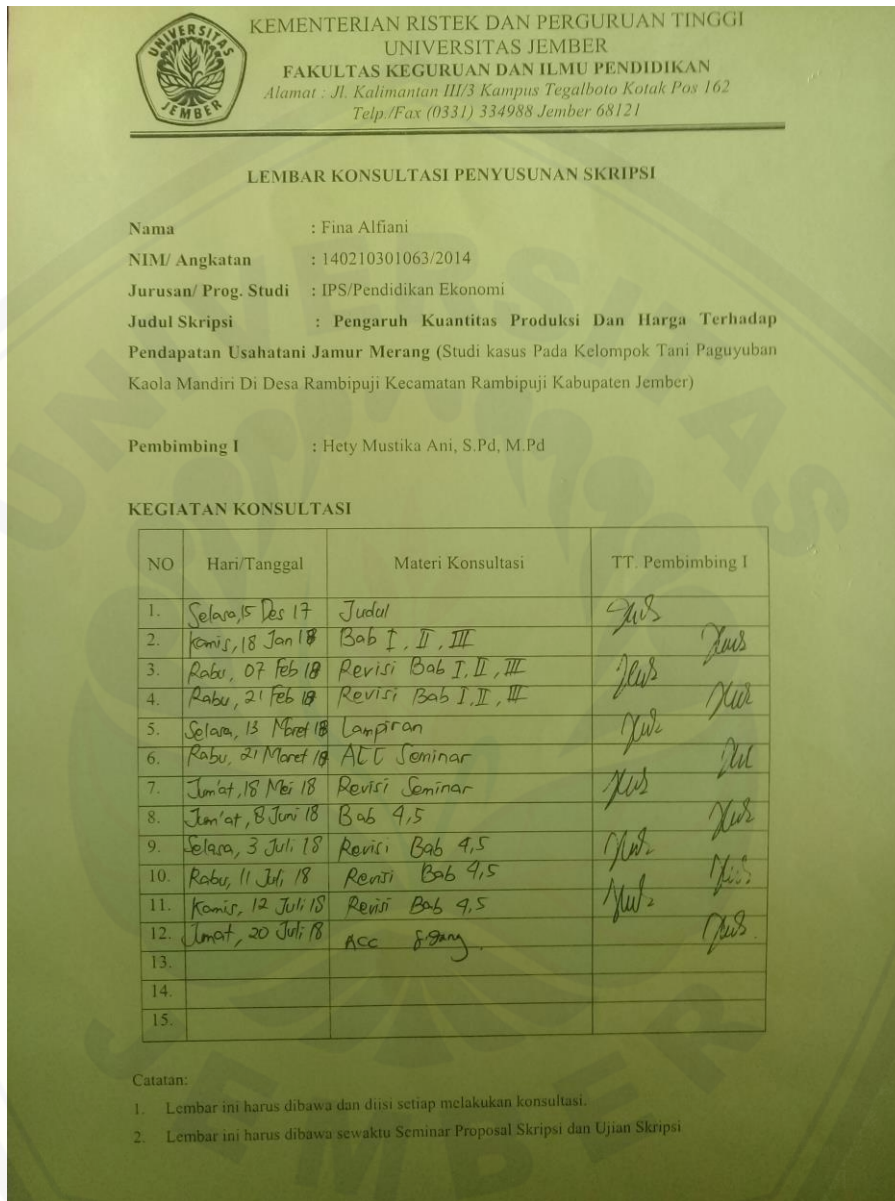 KEMENTERIAN RISTEK DAN PERGURUAN TINGGI
UNIVERSITAS JEMBER
FAKULTAS KEGURUAN DAN ILMU PENDIDIKAN
Alamat : Jl. Kalimantan III/3 Kampus Tegalboto Kotak Pos 162
Telp./Fax (0331) 334988 Jember 68121
UNIVERSITAS JEMBER
LEMBAR KONSULTASI PENYUSUNAN SKRIPSI
Nama : Fina Alfiani
NIM/ Angkatan : 140210301063/2014
Jurusan/ Prog. Studi : IPS/Pendidikan Ekonomi
Judul Skripsi : Pengaruh Kuantitas Produksi Dan Harga Terhadap
Pendapatan Usahatani Jamur Merang (Studi kasus Pada Kelompok Tani Paguyuban
Kaola Mandiri Di Desa Rambipuji Kecamatan Rambipuji Kabupaten Jember)
Pembimbing I : Hety Mustika Ani, S.Pd, M.Pd
KEGIATAN KONSULTASI
NO Hari/Tanggal Materi Konsultasi TT. Pembimbing I
1. Selasa, 15 Des 17 Judul
2. Kamis, 18 Jan 18 Bab I, II, III
3. Rabu, 07 Feb 18 Revisi Bab I, II, III
4. Rabu, 21 Feb 18 Revisi Bab I, II, III
5. Selasa, 13 Maret 18 Lampiran
6. Rabu, 21 Maret 18 ACC Seminar
7. Jum'at, 18 Mei 18 Revisi Seminar
8. Jum'at, 8 Juni 18 Bab 4,5
9. Selasa, 3 Juli 18 Revisi Bab 4,5
10. Rabu, 11 Juli 18 Revisi Bab 4,5
11. Kamis, 12 Juli 18 Revisi Bab 4,5
12. Jumat, 20 Juli 18 ACC Sidang
13.
14.
15.
Catatan:
1. Lembar ini harus dibawa dan diisi setiap melakukan konsultasi.
2. Lembar ini harus dibawa sewaktu Seminar Proposal Skripsi dan Ujian Skripsi